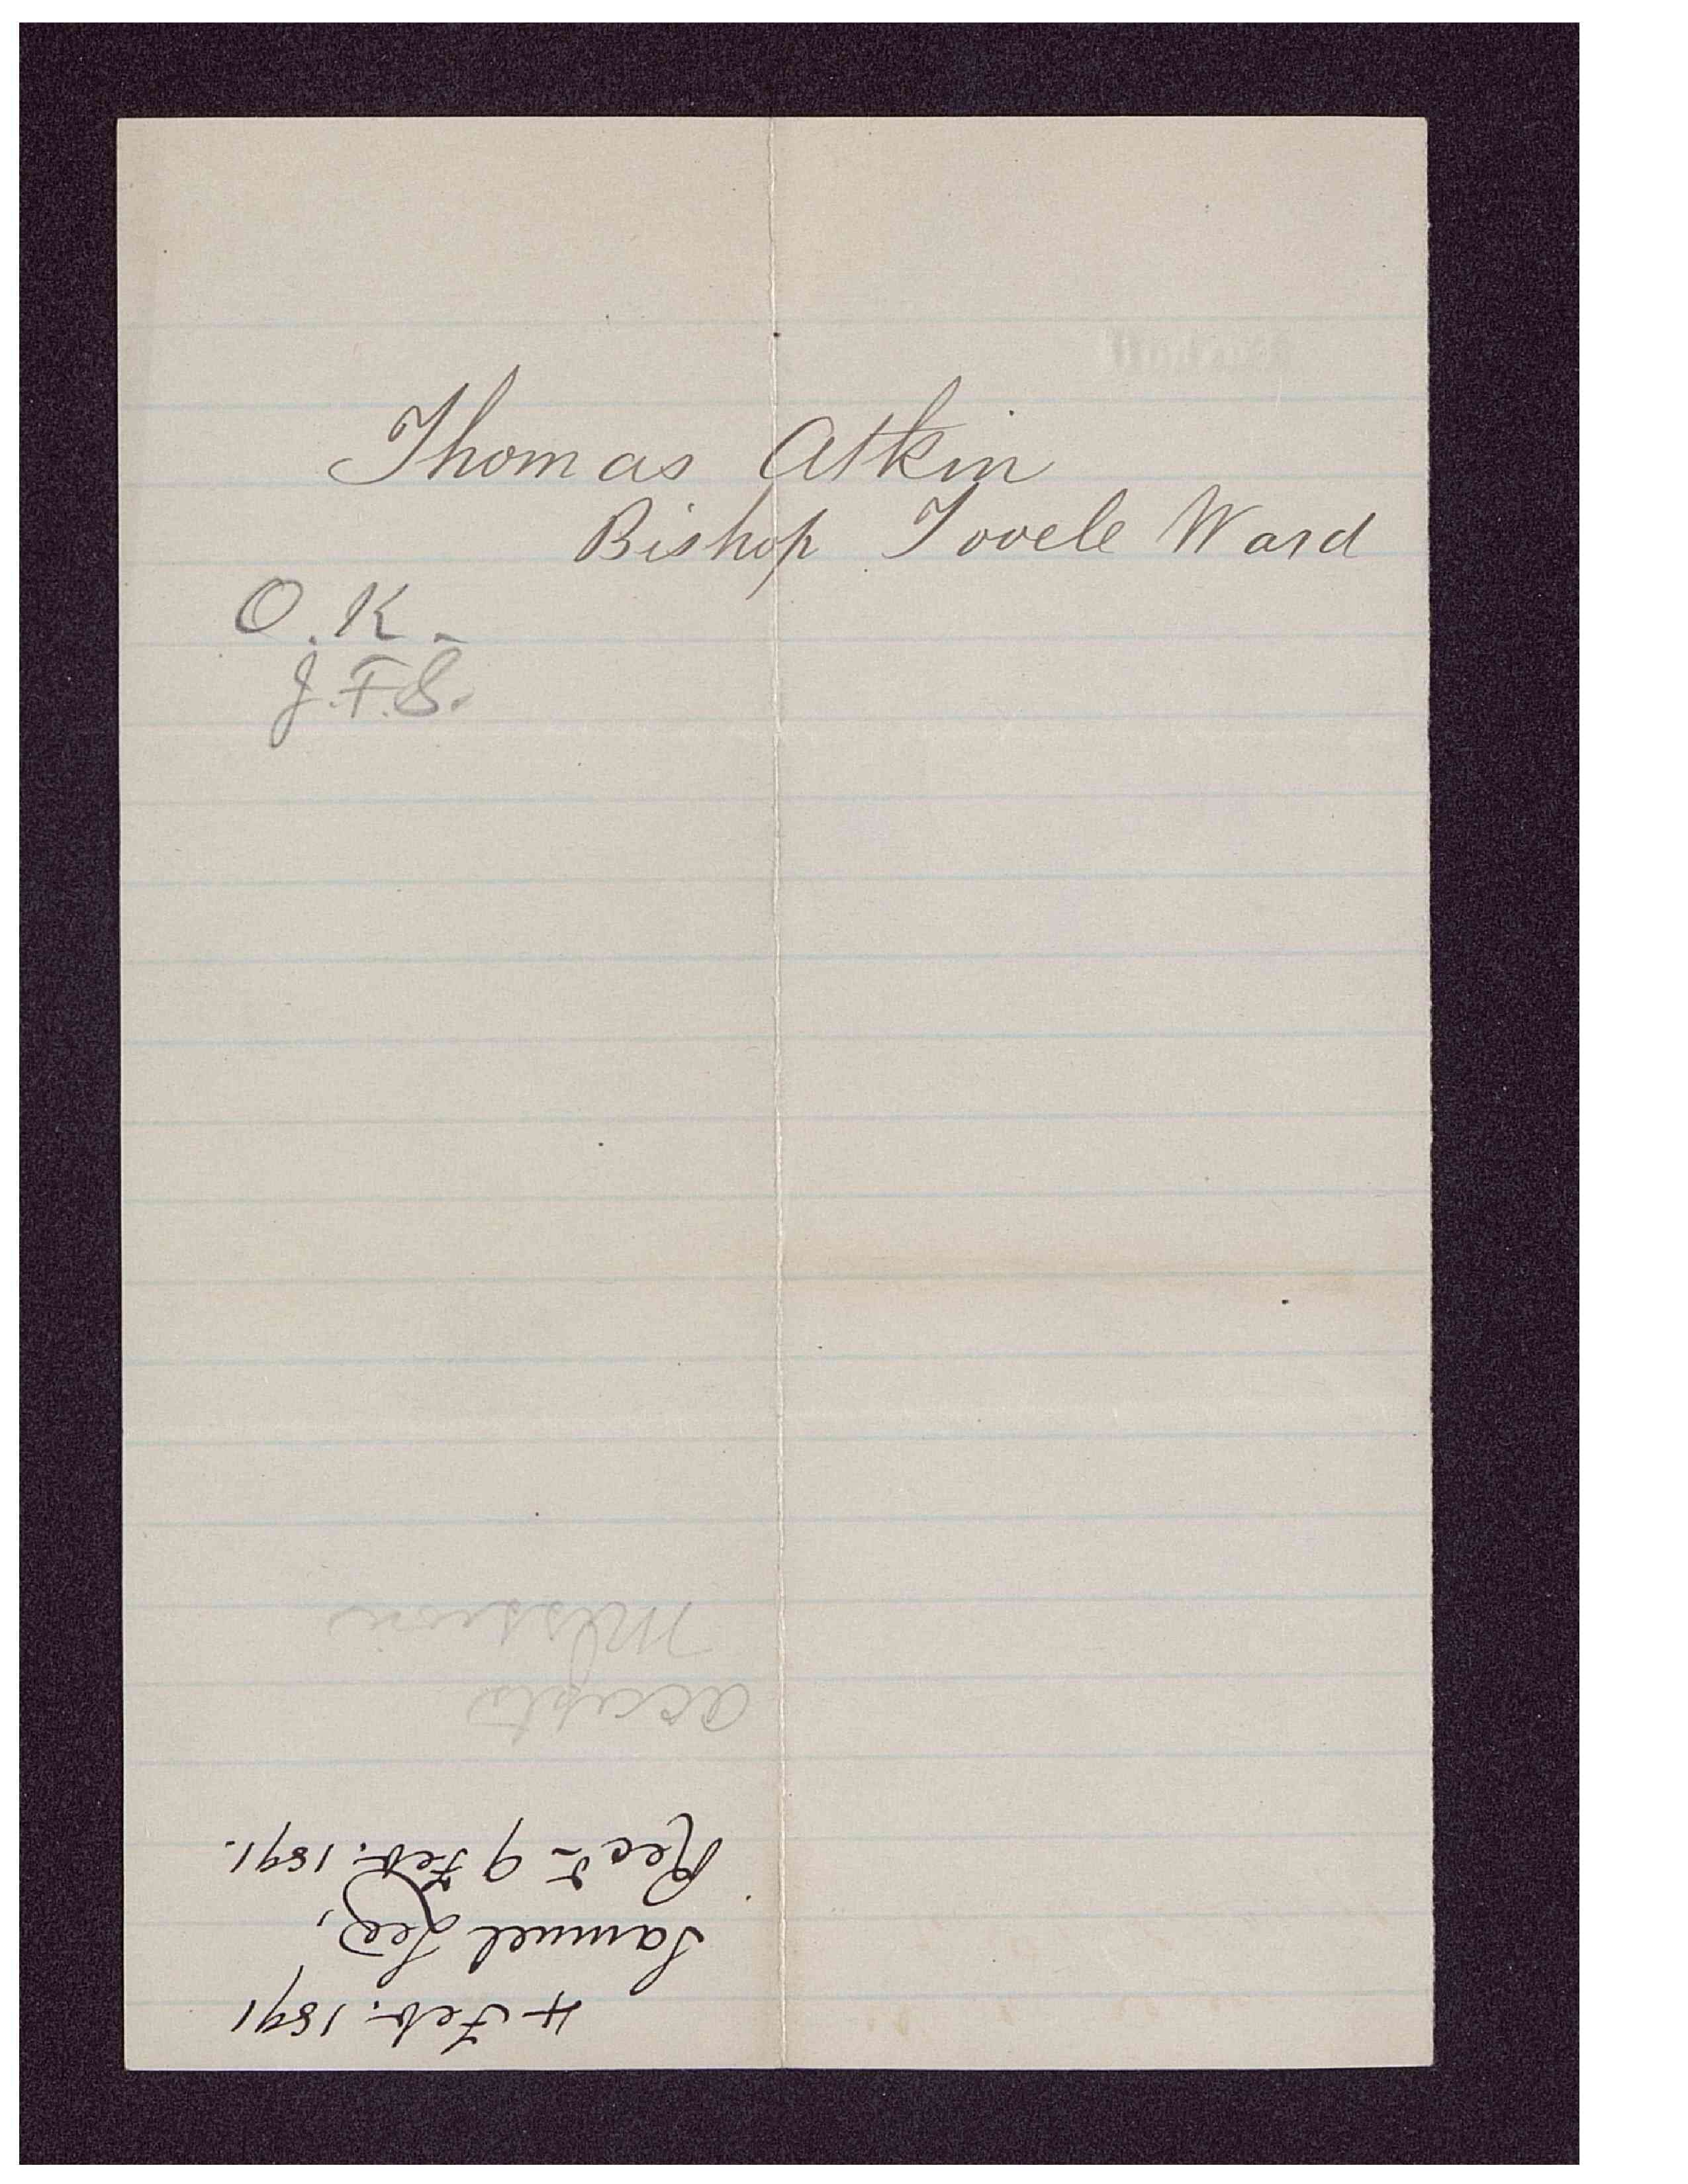 Thomas Atkin
Bishop Tooele Ward
O.K.
J.F.S.
4 Feb. 1891
Samuel Lee,
Rec'd 9 Feb. 1891.
accepts
Mission